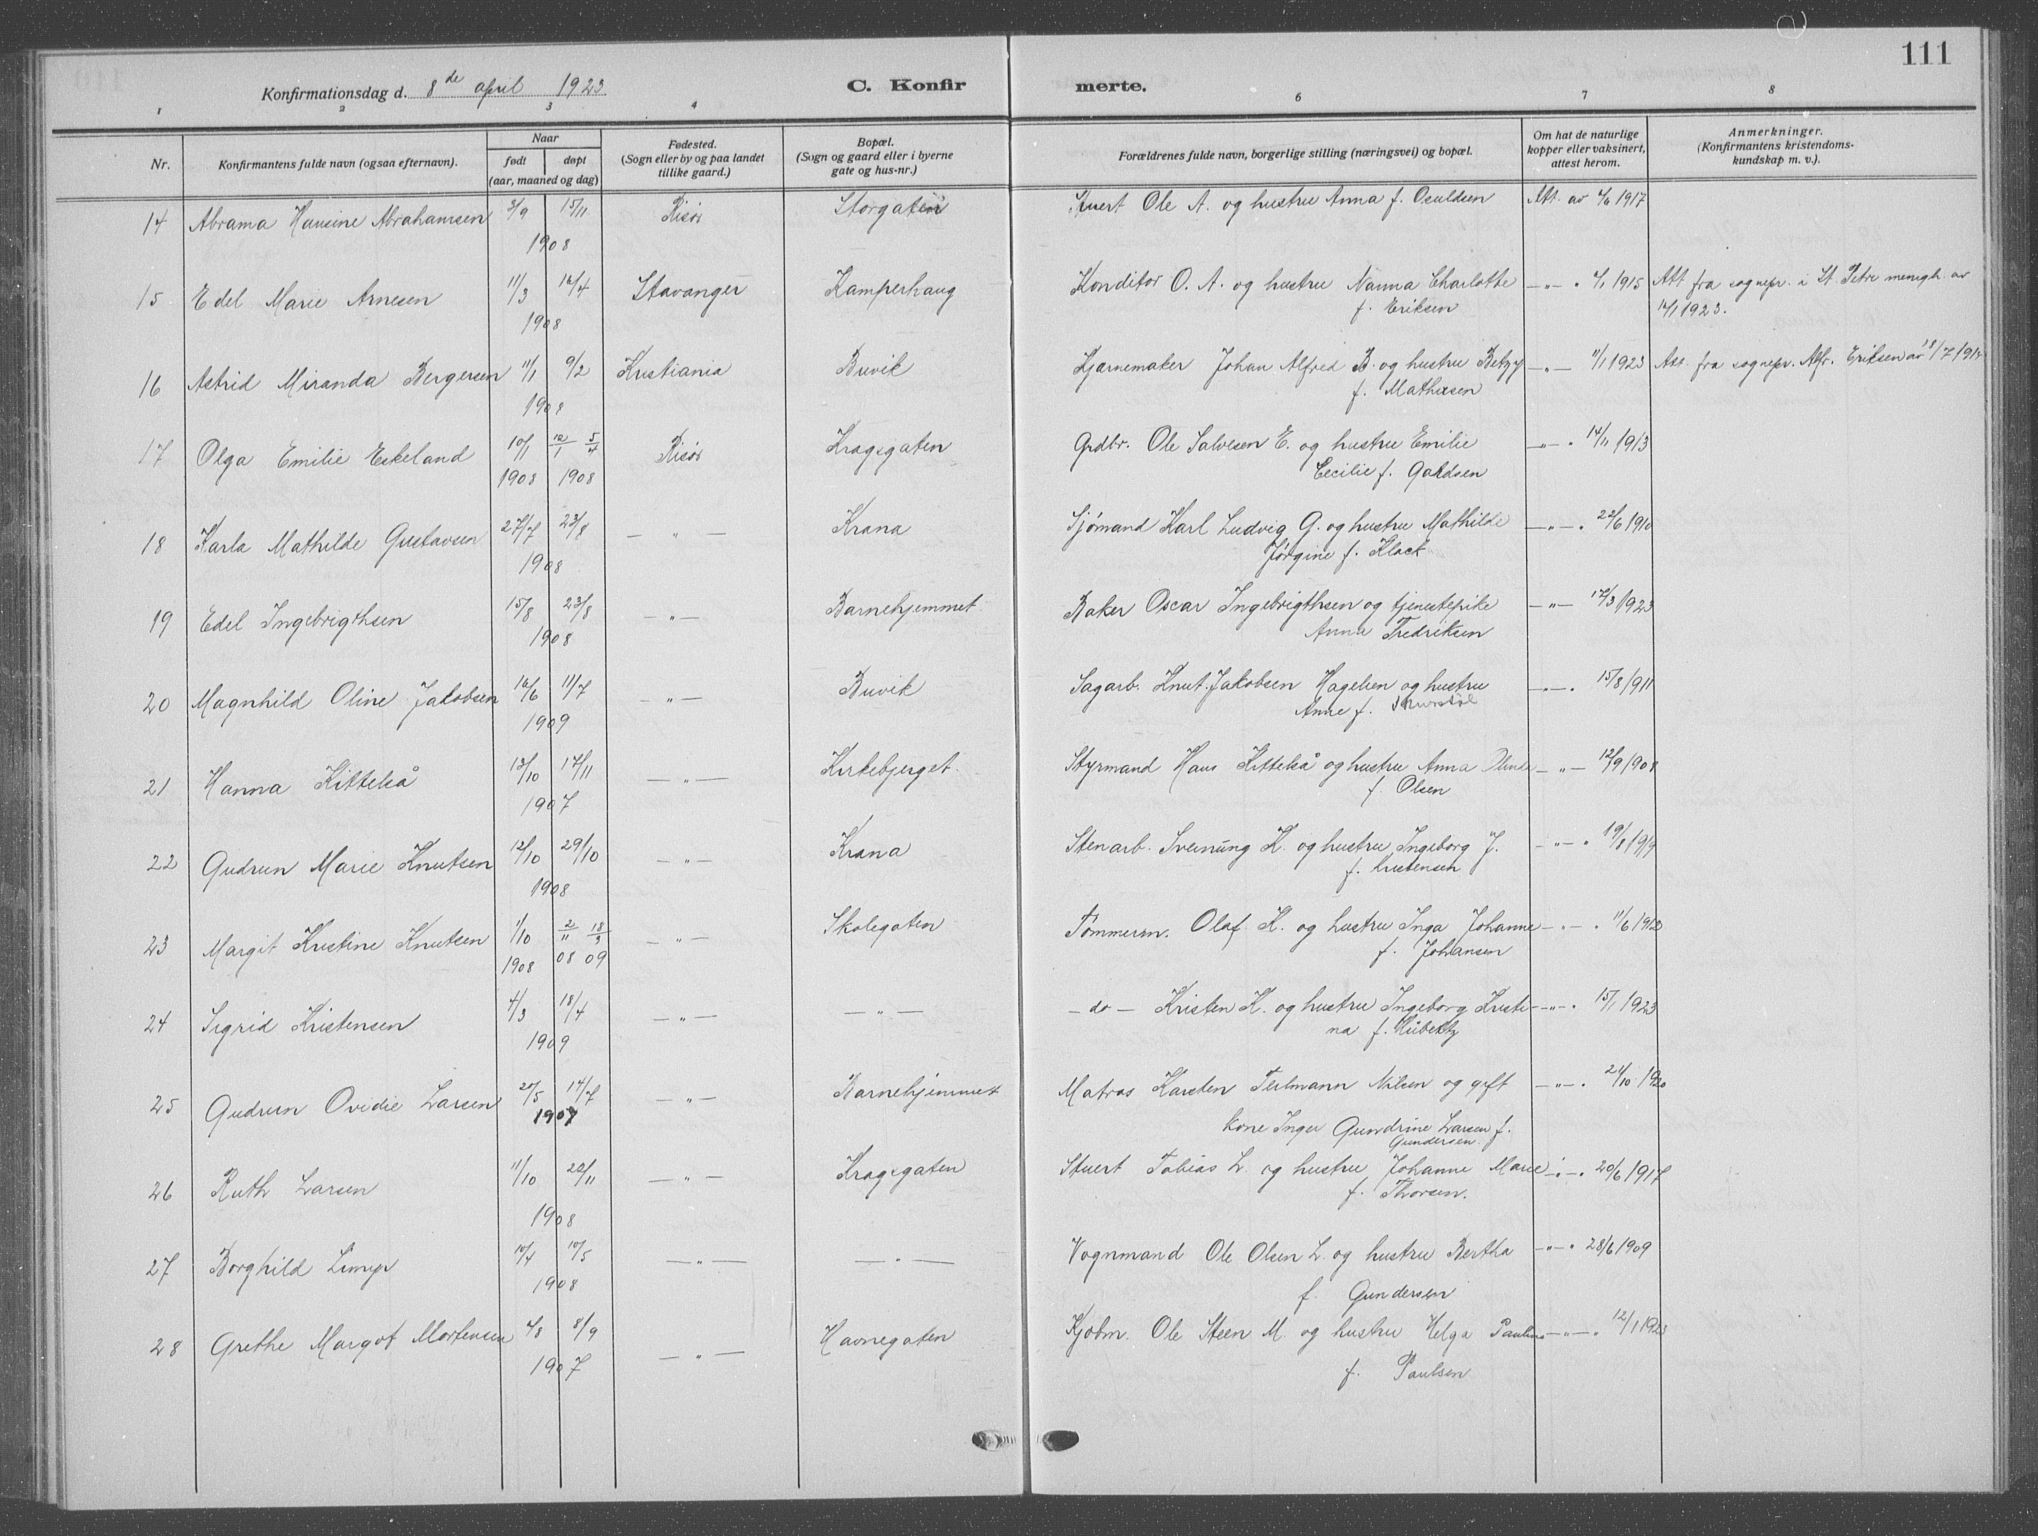 111
Konfirmationsdag d. 8de april 1923
C. Konfirmerte.
1 2 3 4 6 7 8
Nr.
Konfirmantens fulde navn (ogsaa efternavn).
Naar
født døpt
(aar, maaned og dag)
Fødested.
(Sogn eller by og paa landet
tillike gaard.)
Bopæl.
(Sogn og gaard eller i byerne
gate og hus-nr.)
Forældrenes fulde navn, borgerlige stilling (næringsvei) og bopæl.
Om hat de naturlige
kopper eller vaksinert,
attest herom.
Anmerkninger.
(Konfirmantens kristendoms-
kundskap m. v.).
14 Abrama Hansine Abrahamsen 3/9 15/11 Risør Storgaten Stuert Ole A. og hustru Anna f. Osuldsen Att. av 4/6 1917
1908
15 Edel Marie Arnesen 11/3 16/4 Stavanger Kamperhaug Konditor O. A. og hustru Nanna Charlotte — " — " 4/1 1915 Att fra sognepr. i St. Petri menigh. av
1908 f. Eriksen 14/1 1923.
16 Astrid Miranda Bergersen 11/1 9/2 Kristiania Buvik Kjærnemaker Johan Alfred B. og hustru Betzy — " — 11/1 1923 Att. fra sognepr. Alfr. Eriksen av
1908 f. Mathisen
17 Olga Emilie Eskeland 10/1 12/1 5/4 Risør Kragsgaten Grdbr. Ole Salvesen E. og hustru Emilie — " — " 14/11 1913
1908 1908 Cecilie f.
18 Karla Mathilde Gustavsen 27/7 23/8 — " — Krana Sjømand Karl Ludvig G. og hustru Mathilde — " — " 22/6 1910
1908 Jørgine f.
19 Edel Ingebrigthsen 15/8 23/8 — " — Barnehjemmet Baker Oscar Ingebrigthsen og tjenestepike — " — 12/3 1923
1908 Anna Fredriksen
20 Magnhild Oline Jakobsen 16/6 11/7 — " — Buvik Sagarb. Knut Jakobsen Hagelien og hustru — " — " 15/8 1911
1909 Anne f.
21 Hanna Kittelså 13/10 17/11 — " — Kirkebjerget Styrmand Hans Kittelså og hustru Anna Oline — " — 12/9 1908
1907 f. Olsen
22 Gudrun Marie Knutsen 12/10 29/10 — " — Krana Stenarb. Sveinung K. og hustru Ingeborg J. — " — " 19/8 1919
1908 f. Kristensen
23 Margit Kristine Knutsen 1/10 2/11 18/3 — " — Skolegaten Tømmerm. Olaf K. og hustru Inga Johanne — " — " 11/6 1920
1908 08 09 f. Johansen
24 Sigrid Kristensen 4/3 18/4 — " — — " — — do — Kristen K. og hustru Ingeborg Kristi- — " — " 15/1 1923
1909 na f.
25 Gudrun Ovidie Larsen 20/5 14/7 — " — Barnehjemmet Matros Karsten Teilmann Nilsen og gift — " — " 21/10 1920
1907 kone Inger Gundrine Larsen f.
Gundersen
26 Ruth Larsen 11/10 22/11 — " — Kragsgaten Stuert Tobias L. og hustru Johanne Marie — " — " 20/6 1917
1908 f. Thorsen.
27 Borghild Limyr 10/4 10/5 — " — — " — Vognmand Ole Olsen L. og hustru Bertha — " — " 28/6 1909
1908 f. Gundersen
28 Grethe Margot Mortensen 4/8 8/9 — " — Havnegaten Kjøbm. Ole Steen M. og hustru Helga Pauline — " — " 12/1 1923
1907 f. Paulsen